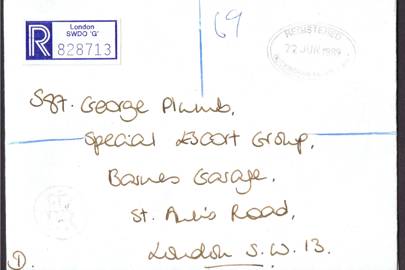 London
SWDO 'G'
R
828713
69
REGISTERED
22 JUN 1989
Sgt. George Plumb,
Special Escort Group,
Barnes Garage,
St. Ann's Road,
London S.W. 13.
1.